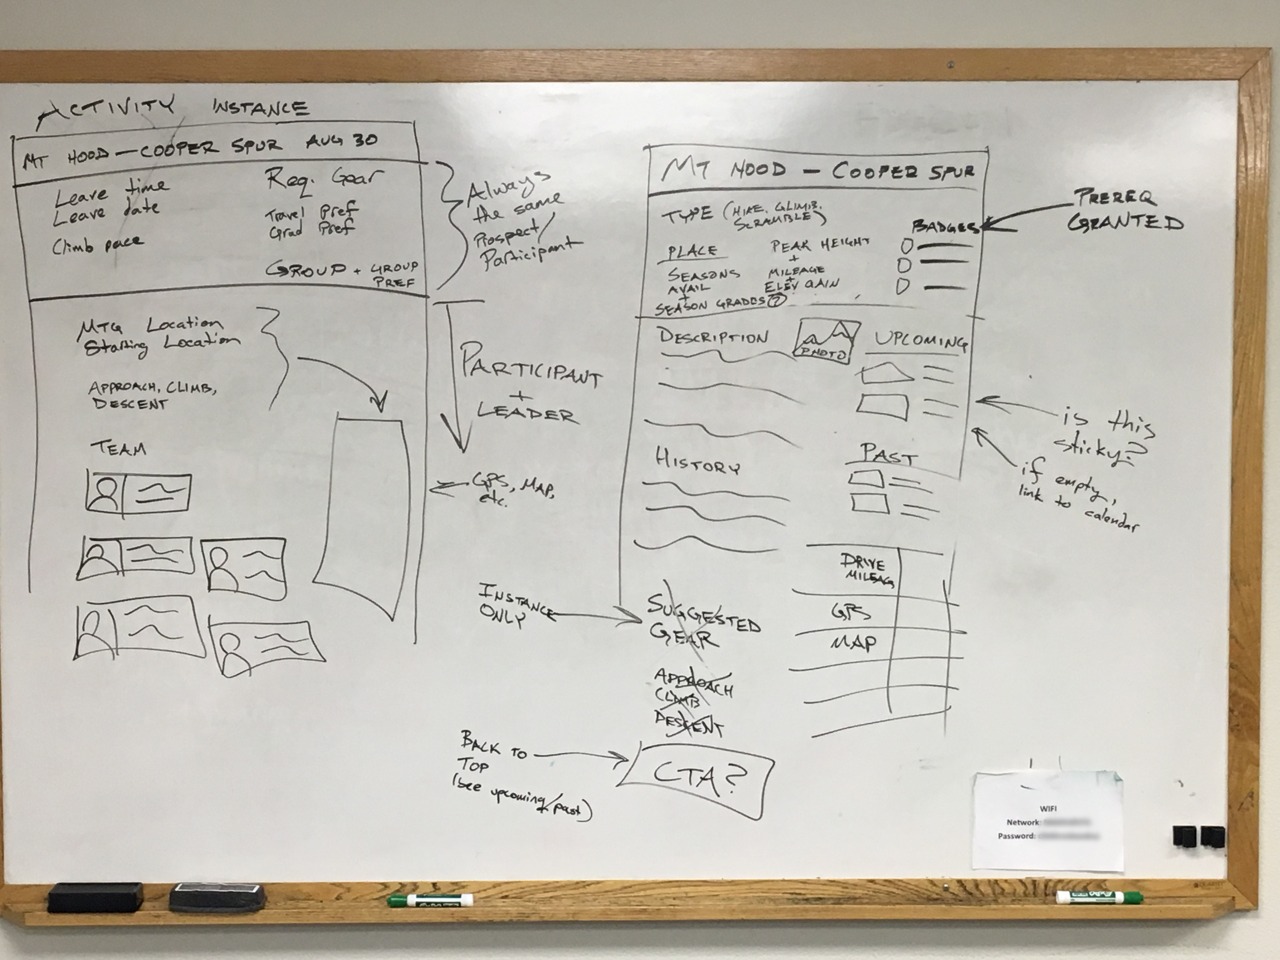 ACTIVITY INSTANCE
MT HOOD — COOPER SPUR AUG 30
Leave time
Leave date
Climb pace
Req. Gear
Travel Pref
Grad Pref
GROUP + GROUP
PREF
Always
the same
Prospect/
Participant
MTG Location
Starting Location
APPROACH, CLIMB,
DESCENT
TEAM
PARTICIPANT
+
LEADER
GPS, MAP,
etc.
MT HOOD — COOPER SPUR
TYPE (HIKE, CLIMB,
SCRAMBLE)
PLACE
SEASONS
AVAIL
+
SEASON GRADES ?
PEAK HEIGHT
+
MILEAGE
+
ELEV GAIN
BADGES
PREREQ
GRANTED
DESCRIPTION
PHOTO
UPCOMING
is this
sticky?
if empty,
link to calendar
HISTORY
PAST
DRIVE
MILEAG
GPS
MAP
INSTANCE
ONLY
SUGGESTED
GEAR
APPROACH
CLIMB
DESCENT
BACK TO
TOP
(see upcoming/past)
CTA?
WIFI
Network:
Password: